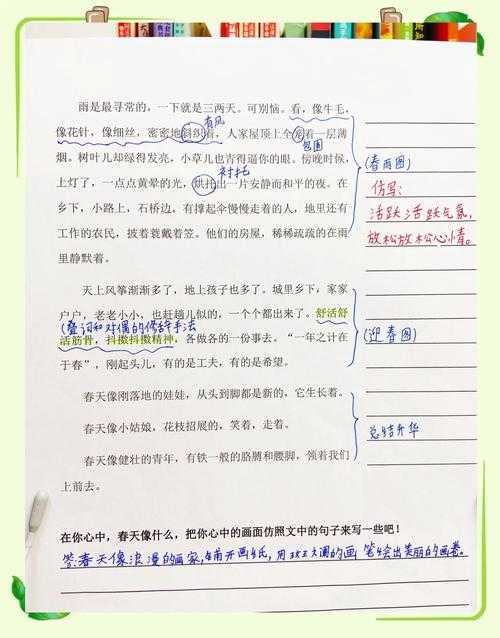 雨是最寻常的，一下就是三两天。可别恼。看，像牛毛，
有风
像花针，像细丝，密密地斜织着，人家屋顶上全笼着一层薄
包围
烟。树叶儿却绿得发亮，小草儿也青得逼你的眼。傍晚时候，
衬托
上灯了，一点点黄晕的光，烘托出一片安静而和平的夜。在
乡下，小路上，石桥边，有撑起伞慢慢走着的人，地里还有
工作的农民，披着蓑戴着笠。他们的房屋，稀稀疏疏的在雨
里静默着。
(春雨图)
仿写：
活跃活跃气氛，
放松放松心情。
天上风筝渐渐多了，地上孩子也多了。城里乡下，家家
户户，老老小小，也赶趟儿似的，一个个都出来了。舒活舒
(叠词和对偶的修辞手法
活筋骨，抖擞抖擞精神，各做各的一份事去。“一年之计在
于春”，刚起头儿，有的是工夫，有的是希望。
(迎春图)
春天像刚落地的娃娃，从头到脚都是新的，它生长着。
春天像小姑娘，花枝招展的，笑着，走着。
春天像健壮的青年，有铁一般的胳膊和腰脚，领着我们
上前去。
总结升华
在你心中，春天像什么，把你心中的画面仿照文中的句子来写一些吧！
答：春天像浪漫的画家，铺开画纸，用斑斓的画笔绘出美丽的画卷。